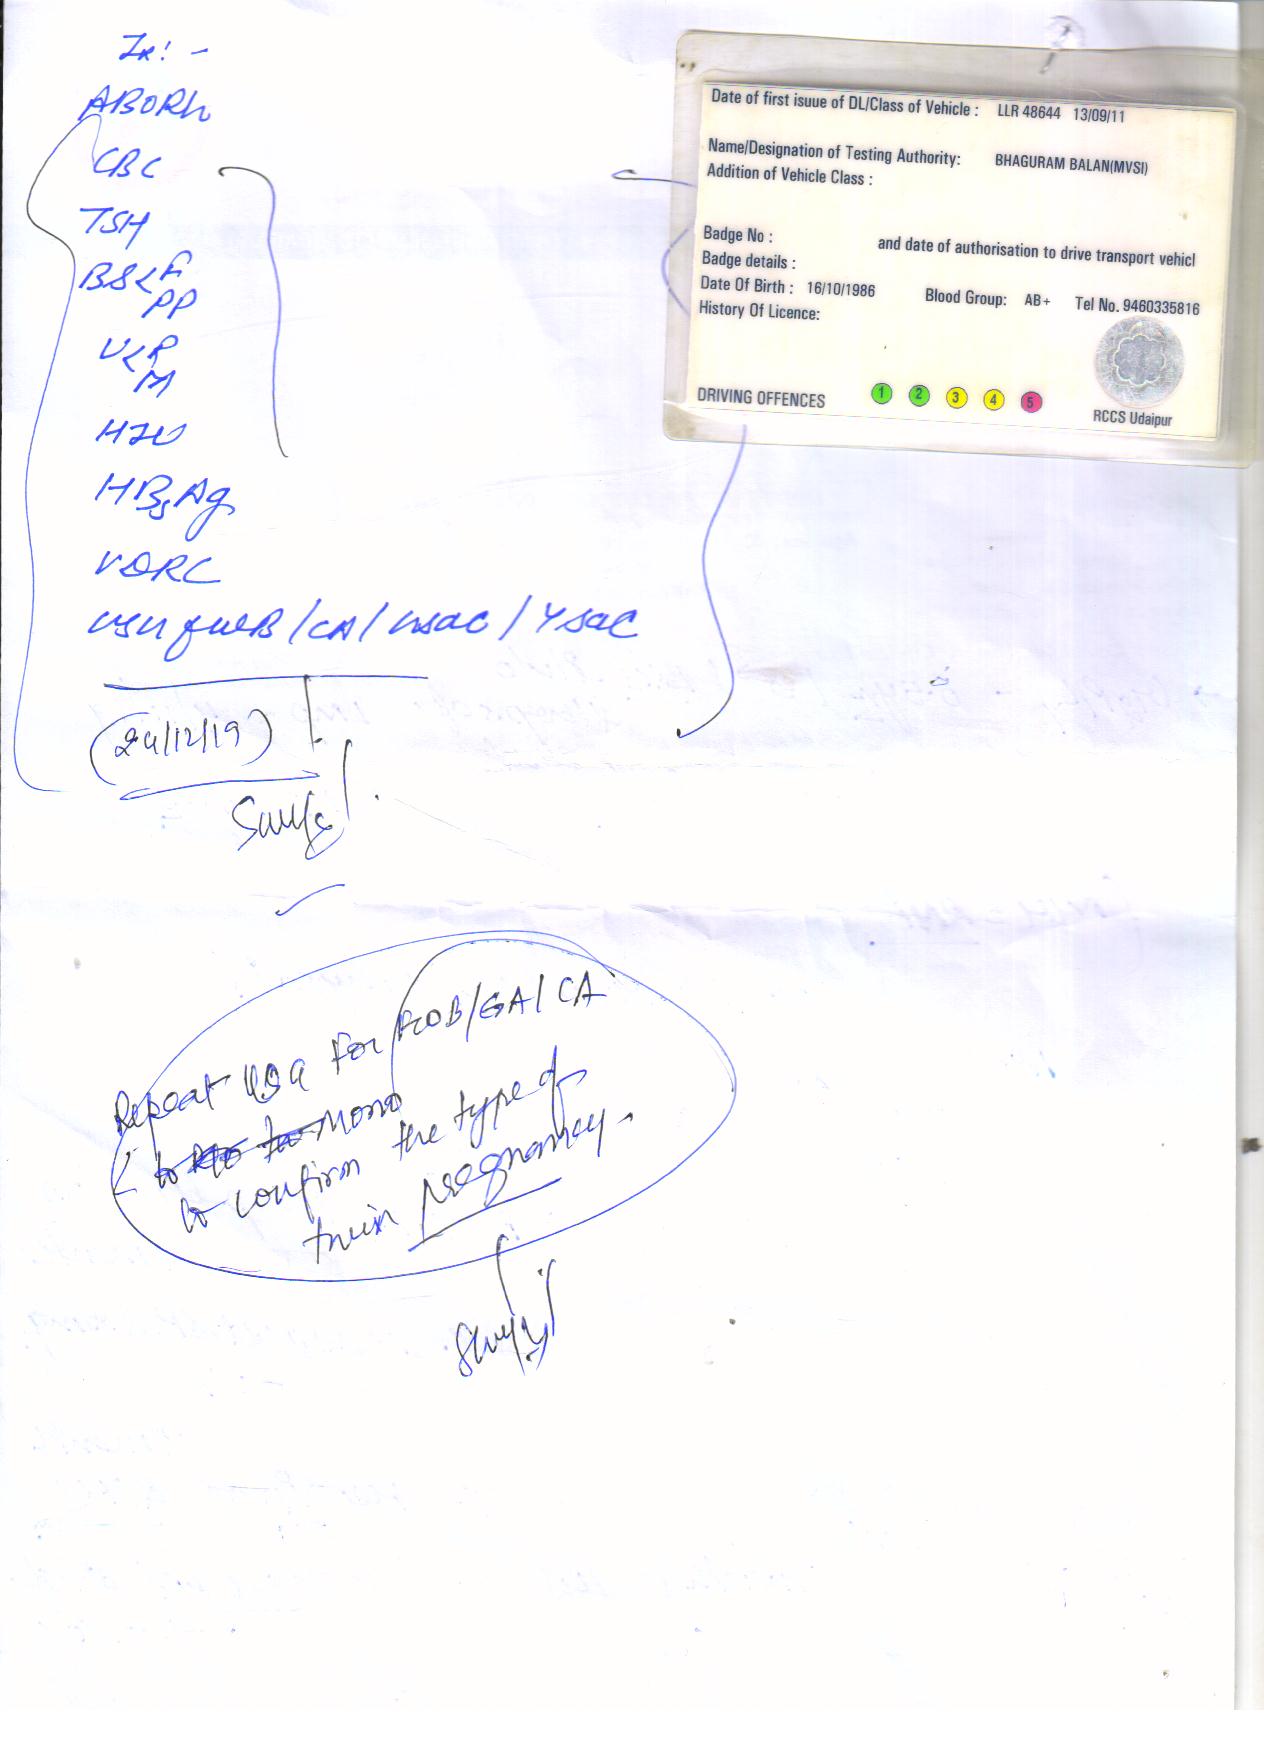 ABORh
CBC
TSH
BS < F
PP
U < R
M
HIV
HBsAg
VDRL
(24/12/19)
Repeat USG for FOB/GA/CA
to confirm the type of
twin pregnancy.
Date of first isuue of DL/Class of Vehicle : LLR 48644 13/09/11
Name/Designation of Testing Authority: BHAGURAM BALAN(MVSI)
Addition of Vehicle Class :
Badge No : and date of authorisation to drive transport vehicl
Badge details :
Date Of Birth : 16/10/1986 Blood Group: AB+ Tel No. 9460335816
History Of Licence:
DRIVING OFFENCES 1 2 3 4 5
RCCS Udaipur